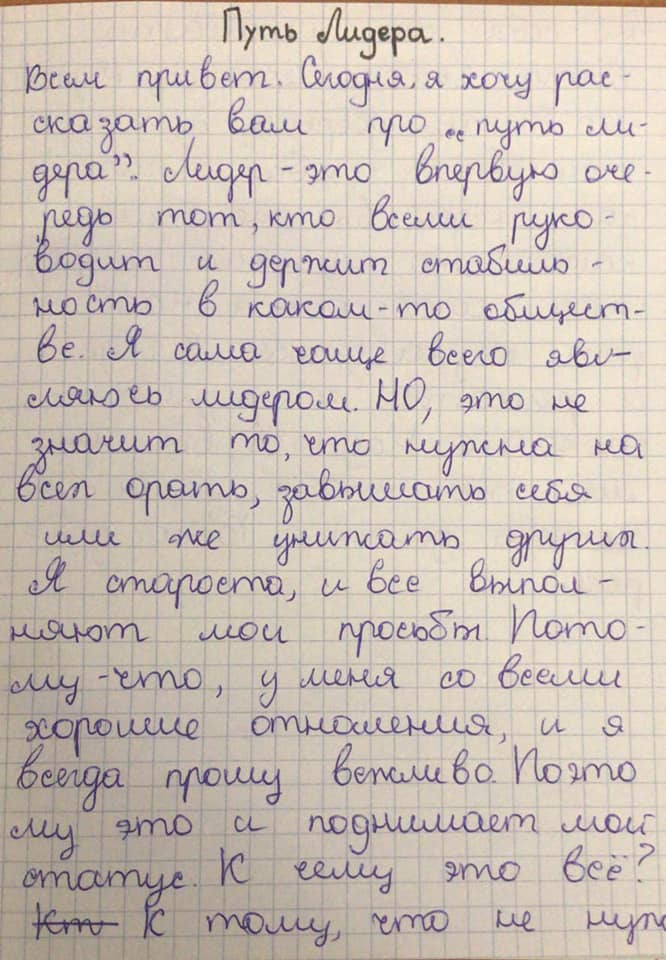 Путь Лидера.
Всем привет. Сегодня, я хочу рас-
сказать вам про „путь ли-
дера”. Лидер - это впервую оче-
редь тот, кто всеми руко-
водит и держит стабиль-
ность в каком-то общест-
ве. Я сама чаще всего яв-
ляюсь лидером. НО, это не
значит то, что нужна на
всех орать, завышать себя
или же унижать других.
Я староста, и все выпол-
няют мои просьбы. Пото-
му-что, у меня со всеми
хорошие отношения, и я
всегда прошу вежливо. Поэто
му это и поднимает мой
статус. К чему это всё?
К тому, что не нуж